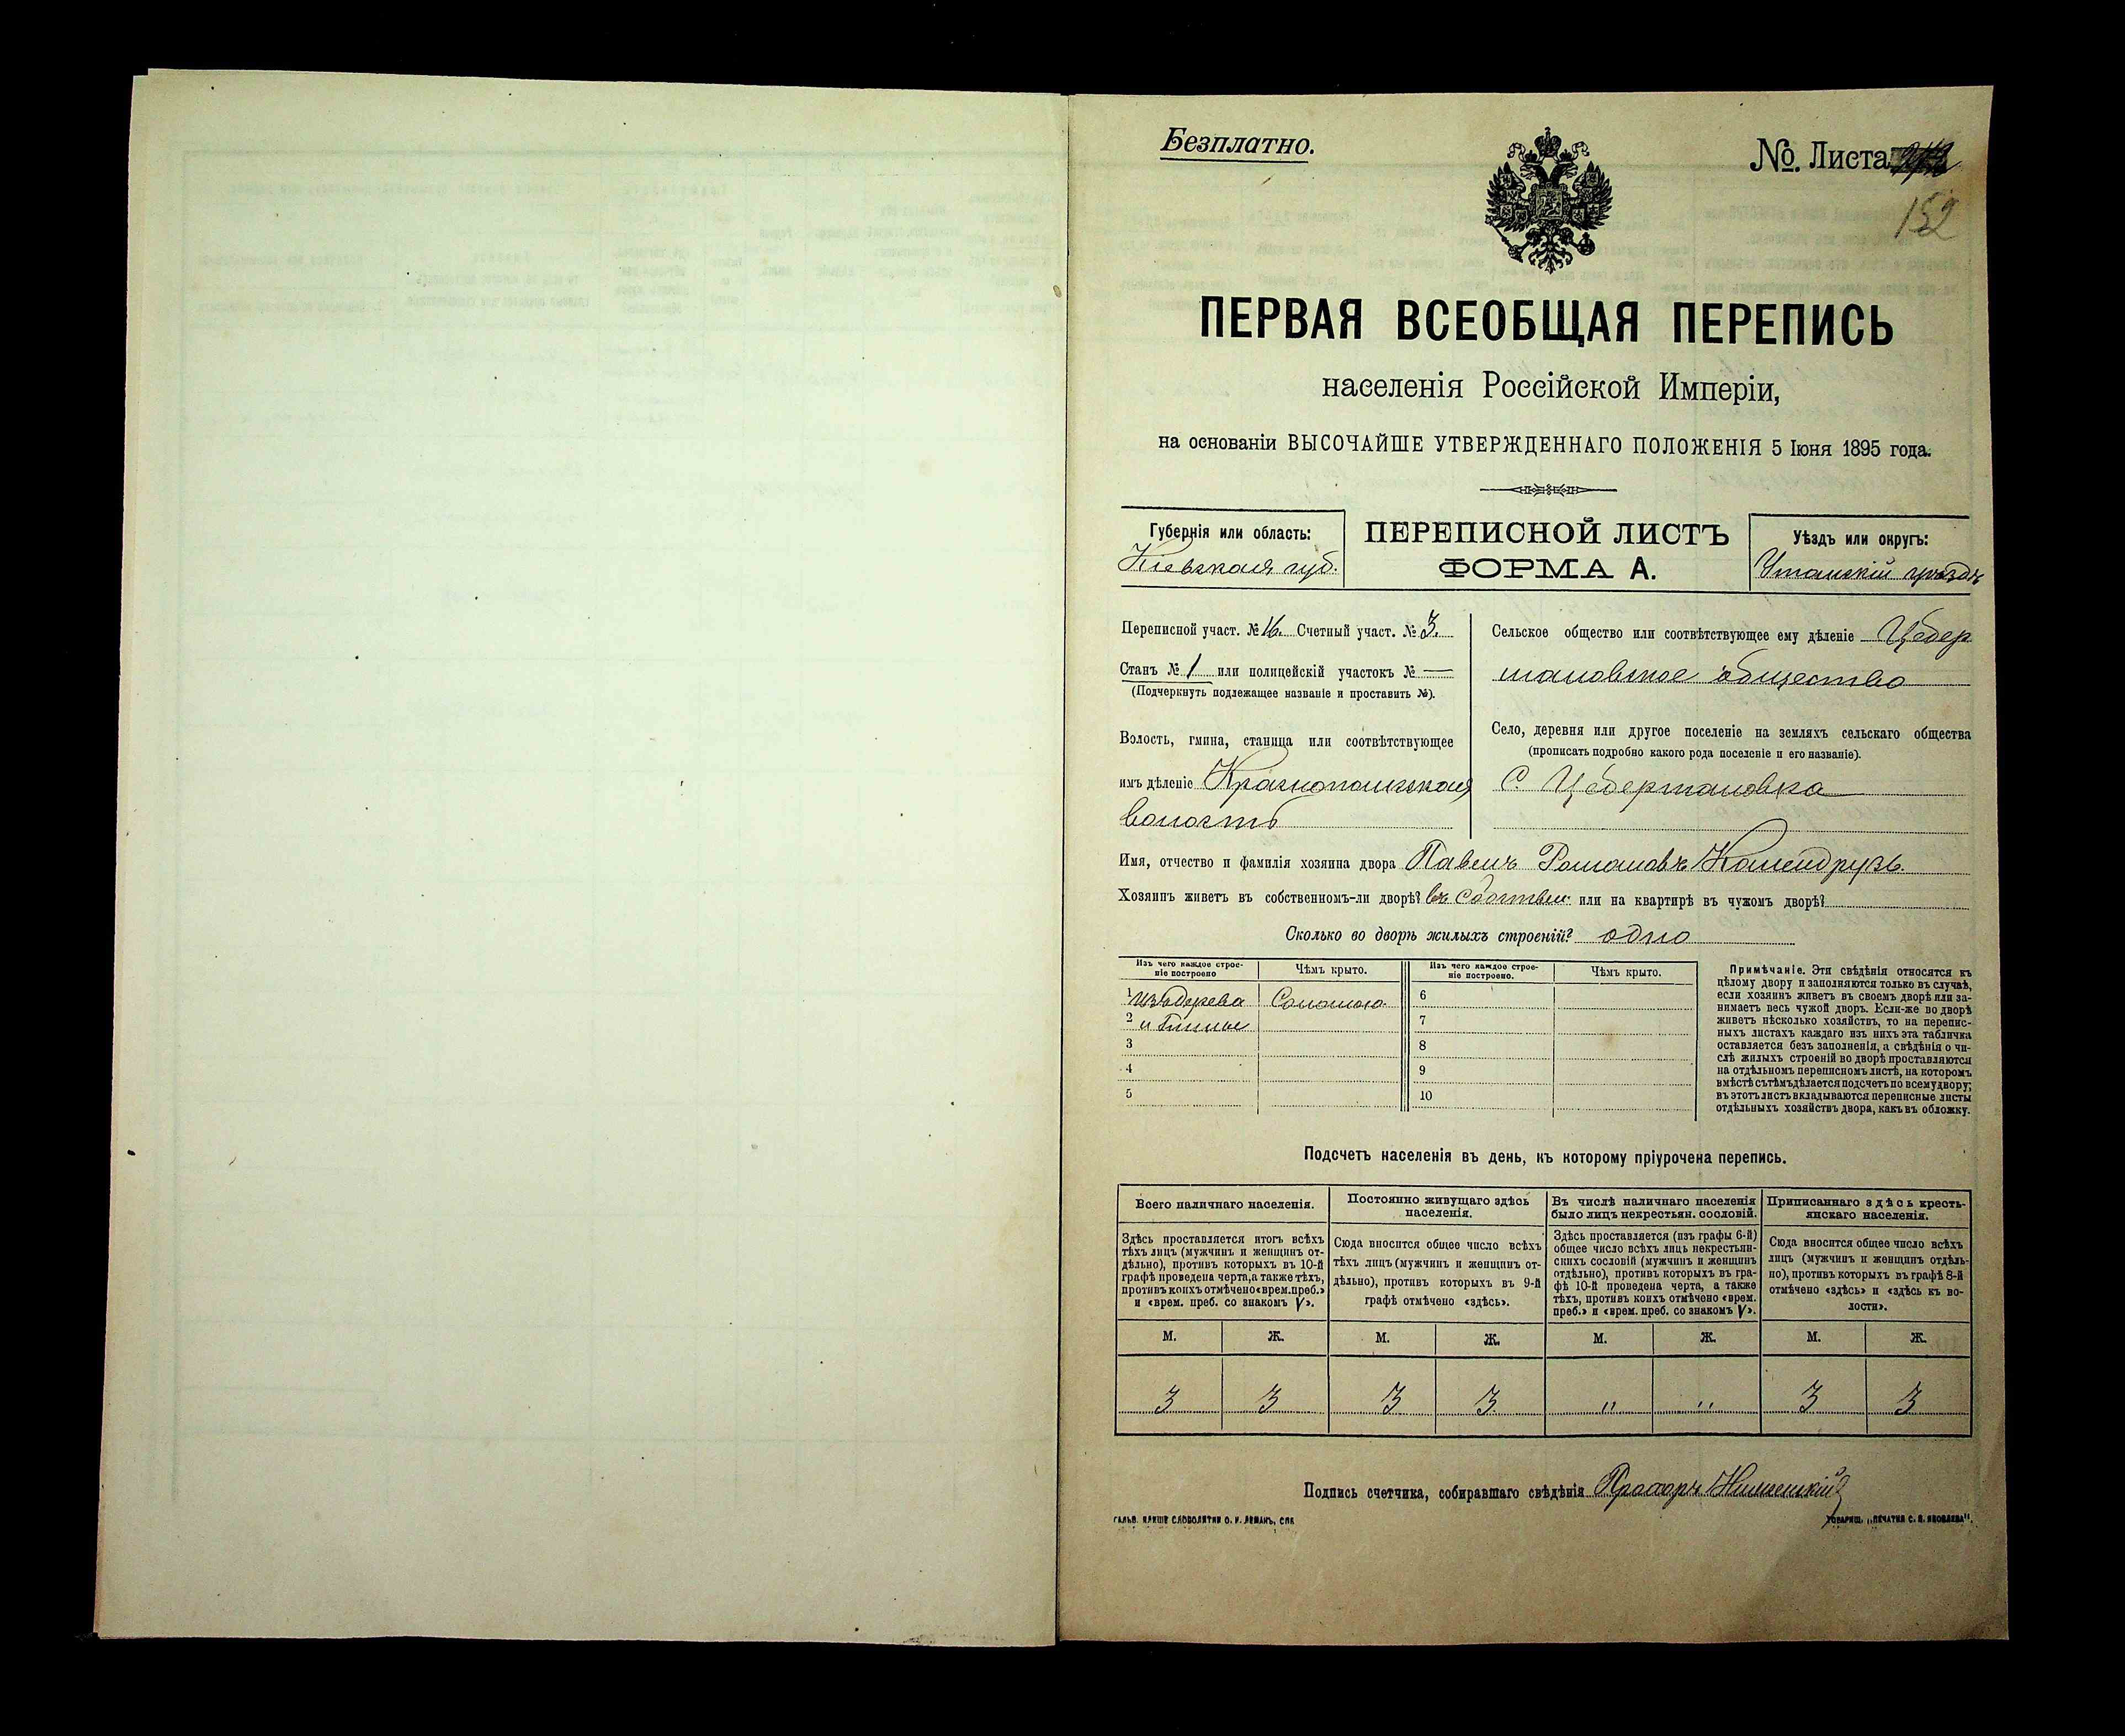 Безплатно.
№. Листа
152
ПЕРВАЯ ВСЕОБЩАЯ ПЕРЕПИСЬ
населенія Россійской Имперіи,
на основаніи ВЫСОЧАЙШЕ УТВЕРЖДЕННАГО ПОЛОЖЕНІЯ 5 Іюня 1895 года.
Губернія или область:
Кіевская губ.
ПЕРЕПИСНОЙ ЛИСТЪ
ФОРМА А.
Уѣздъ или округъ:
Уманскій уѣздъ
Переписной участ. № 16. Счетный участ. № 3.
Станъ № 1 или полицейскій участокъ № —
(Подчеркнуть подлежащее названіе и проставить №).
Волость, гмина, станица или соотвѣтствующее
имъ дѣленіе Краснопольская
волость
Сельское общество или соотвѣтствующее ему дѣленіе Цебер
мановское общество
Село, деревня или другое поселеніе на земляхъ сельскаго общества
(прописать подробно какого рода поселеніе и его названіе).
С. Цебермановка
Имя, отчество и фамилія хозяина двора Павелъ Романовъ
Хозяинъ живетъ въ собственномъ-ли дворѣ? въ собствен. или на квартирѣ въ чужомъ дворѣ?
Сколько во дворѣ жилыхъ строеній? одно
Изъ чего каждое строе-
ніе построено
Чѣмъ крыто.
Изъ чего каждое строе-
ніе построено.
Чѣмъ крыто.
1 изъ дерева Соломою
2 и глины
3
4
5
6
7
8
9
10
Примѣчаніе. Эти свѣдѣнія относятся къ
цѣлому двору и заполняются только въ случаѣ,
если хозяинъ живетъ въ своемъ дворѣ или за-
нимаетъ весь чужой дворъ. Если-же во дворѣ
живетъ нѣсколько хозяйствъ, то на перепис-
ныхъ листахъ каждаго изъ нихъ эта табличка
оставляется безъ заполненія, а свѣдѣнія о чи-
слѣ жилыхъ строеній во дворѣ проставляются
на отдѣльномъ переписномъ листѣ, на которомъ
вмѣстѣ съ тѣмъ дѣлается подсчетъ по всему двору;
въ этотъ листъ вкладываются переписные листы
отдѣльныхъ хозяйствъ двора, какъ въ обложку.
Подсчетъ населенія въ день, къ которому пріурочена перепись.
Всего наличнаго населенія.
Здѣсь проставляется итогъ всѣхъ
тѣхъ лицъ (мужчинъ и женщинъ от-
дѣльно), противъ которыхъ въ 10-й
графѣ проведена черта, а также тѣхъ,
противъ коихъ отмѣчено «врем. преб.»
и «врем. преб. со знакомъ V».
Постоянно живущаго здѣсь
населенія.
Сюда вносится общее число всѣхъ
тѣхъ лицъ (мужчинъ и женщинъ от-
дѣльно), противъ которыхъ въ 9-й
графѣ отмѣчено «здѣсь».
Въ числѣ наличнаго населенія
было лицъ некрестьян. сословій.
Здѣсь проставляется (изъ графы 6-й)
общее число всѣхъ лицъ некрестьян-
скихъ сословій (мужчинъ и женщинъ
отдѣльно), противъ которыхъ въ гра-
фѣ 10-й проведена черта, а также
тѣхъ, противъ коихъ отмѣчено «врем.
преб.» и «врем. преб. со знакомъ V».
Приписаннаго здѣсь кресть-
янскаго населенія.
Сюда вносится общее число всѣхъ
лицъ (мужчинъ и женщинъ отдѣль-
но), противъ которыхъ въ графѣ 8-й
отмѣчено «здѣсь» и «здѣсь къ во-
лости».
М. Ж. М. Ж. М. Ж. М. Ж.
3 3 3 3 " " 3 3
Подпись счетчика, собиравшаго свѣдѣнія Прохоръ
ГАЛЬВ. КЛИШЕ СЛОВОЛИТНИ О. И. ЛЕМАНЪ, СПБ.
ТОВАРИЩ. „ПЕЧАТНЯ С. П. ЯКОВЛЕВА".